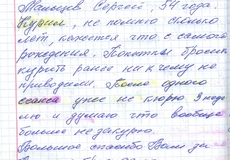 Мальцев Сергей, 54 года.
Курил, не помню сколько
лет, кажется что с самого
рождения. Попытки бросить
курить ранее ни к чему не
приводили. После одного
сеанса уже не курю 3 неде
лю и думаю что вообще
больше не закурю.
Большое спасибо Вам за